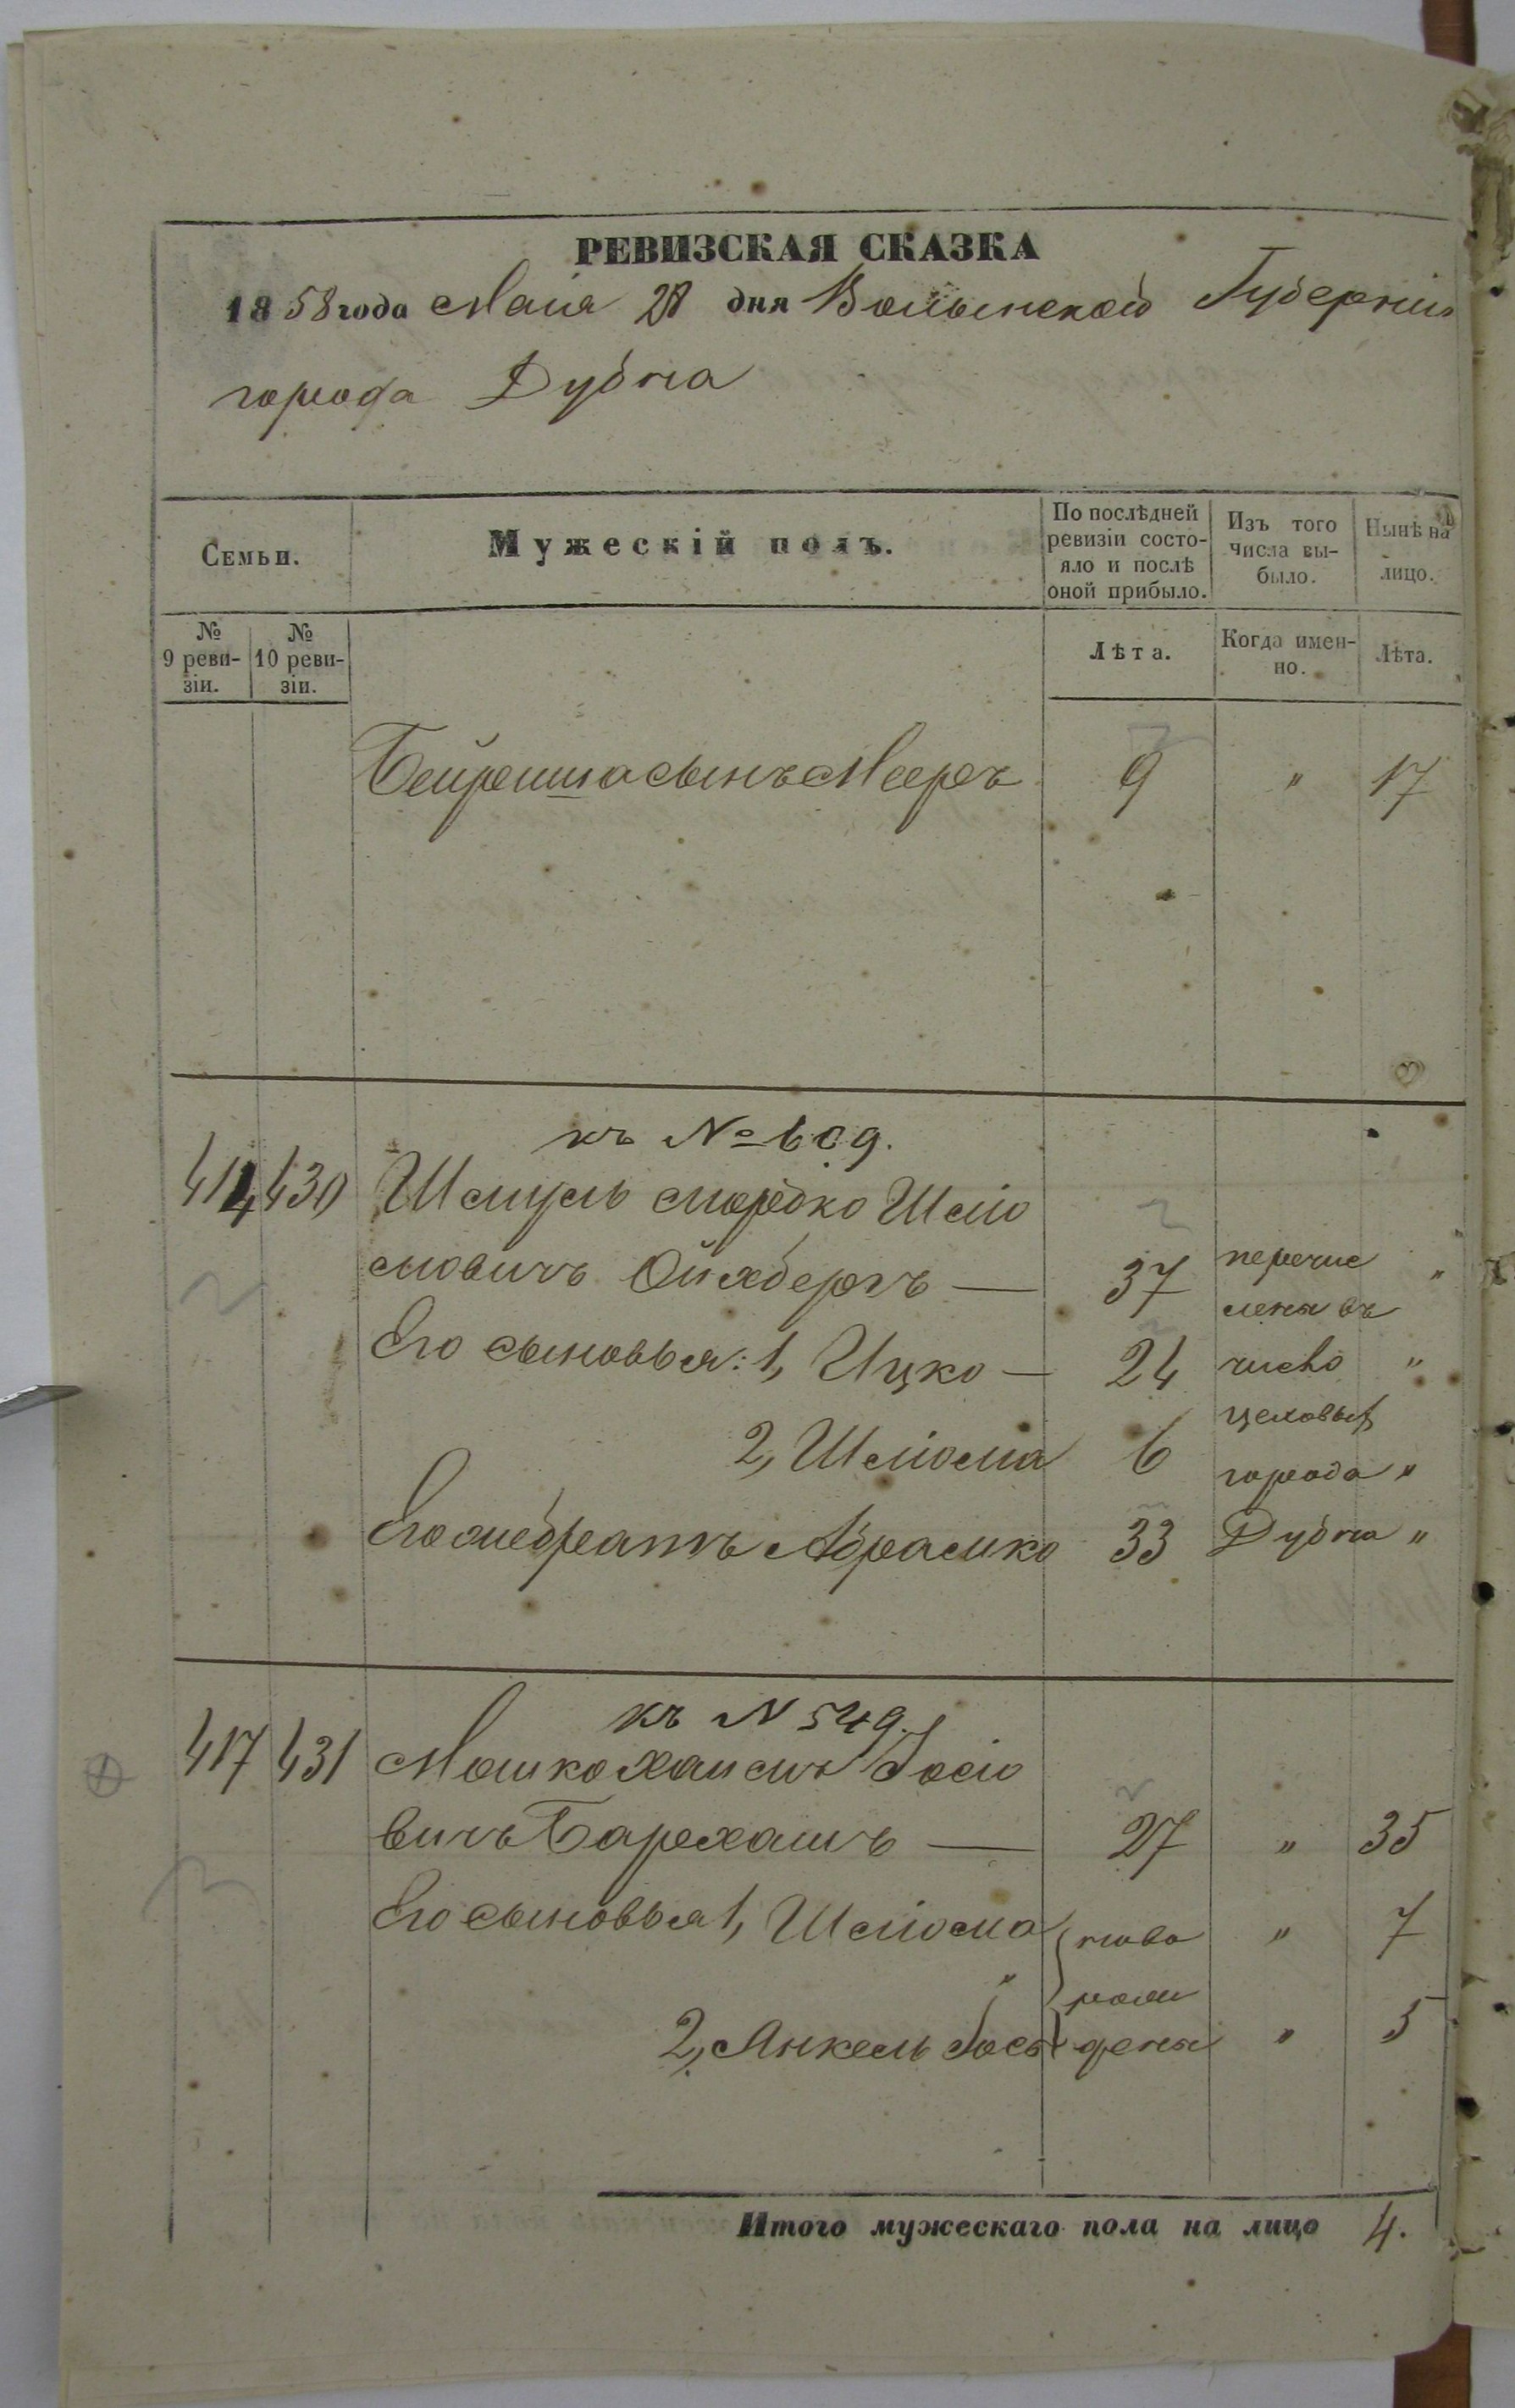 РЕВИЗСКАЯ СКАЗКА
1858 года Маія 28 дня Волынской Губерніи
города Дубна
Семьи.
Мужескій полъ.
По послѣдней ревизіи состо-
яло и послѣ оной прибыло.
Изъ того числа вы-
было.
Нынѣ на лицо.
№ 9 реви-
зіи.
№ 10 реви-
зіи.
Лѣта.
Когда имен-
но.
Лѣта.
сынъ Мееръ 9 " 17
къ № 609.
414 430 Шмуль Мордко Шлio
мовичъ Ойхбергъ — 37 перечис "
лены въ
Его сыновья: 1, Ицко — 24 число "
цеховыхъ
2, Шліома 6 города "
Его же братъ Абрамко 33 Дубна "
къ N 549.
417 431 Мошко Хаимъ Іосіо
вичъ — 27 " 35
Его сыновья 1, Шліома ново " 7
рож
2, Янкель Іось дены " 5
Итого мужескаго пола на лицо 4.